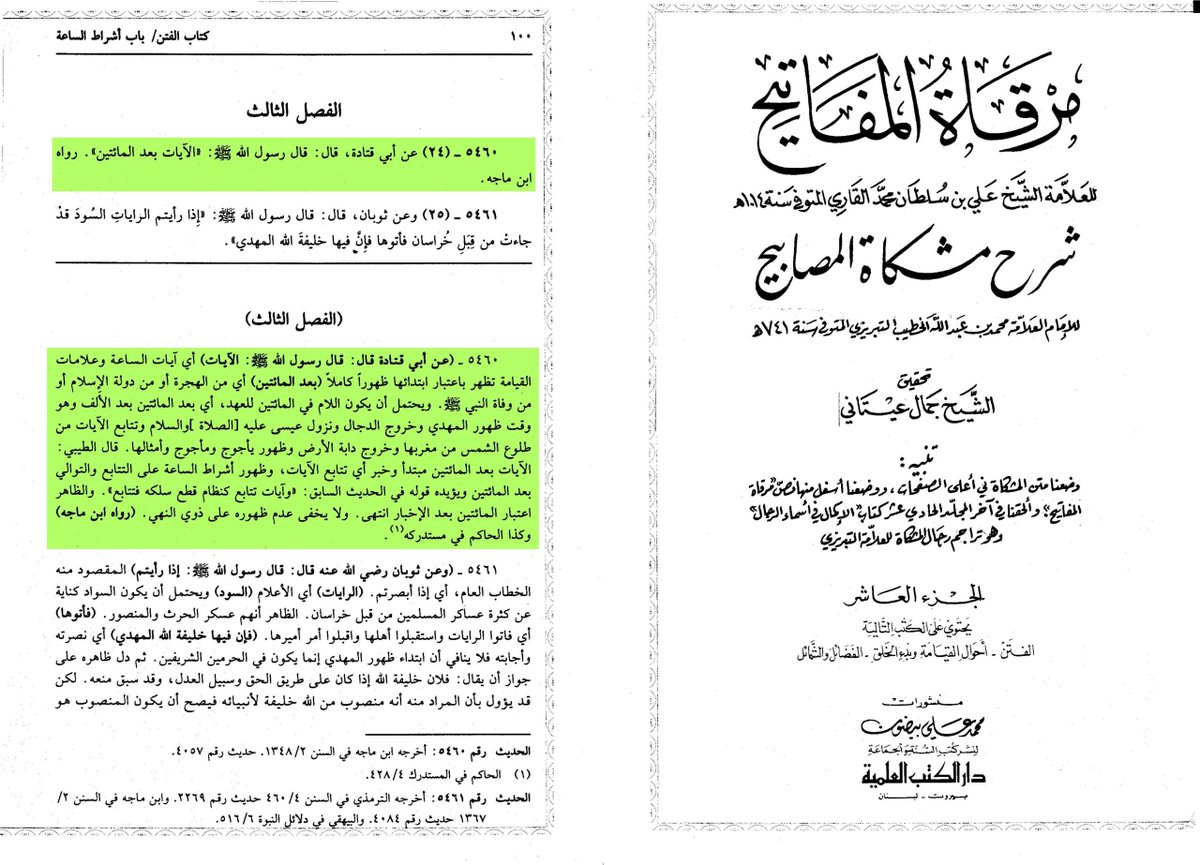 ١٠٠
كتاب الفتن/ باب أشراط الساعة
الفصل الثالث
٥٤٦٠ ـ (٢٤) عن أبي قتادة، قال: قال رسول الله ﷺ: «الآيات بعد المائتين». رواه
ابن ماجه.
٥٤٦١ ـ (٢٥) وعن ثوبان، قال: قال رسول الله ﷺ: «إِذا رأيتم الراياتِ السُودَ قدْ
جاءتْ من قِبَلِ خُراسان فأتوها فإِنَّ فيها خليفةَ الله المهدي».
(الفصل الثالث)
٥٤٦٠ ـ (عن أبي قتادة قال: قال رسول الله ﷺ: الآيات) أي آيات الساعة وعلامات
القيامة تظهر باعتبار ابتدائها ظهوراً كاملاً (بعد المائتين) أي من الهجرة أو من دولة الإسلام أو
من وفاة النبي ﷺ. ويحتمل أن يكون اللام في المائتين للعهد، أي بعد المائتين بعد الألف وهو
وقت ظهور المهدي وخروج الدجال ونزول عيسى عليه [الصلاة ]والسلام وتتابع الآيات من
طلوع الشمس من مغربها وخروج دابة الأرض وظهور يأجوج ومأجوج وأمثالها. قال الطيبي:
الآيات بعد المائتين مبتدأ وخبر أي تتابع الآيات، وظهور أشراط الساعة على التتابع والتوالي
بعد المائتين ويؤيده قوله في الحديث السابق: «وآيات تتابع كنظام قطع سلكه فتتابع». والظاهر
اعتبار المائتين بعد الإخبار انتهى. ولا يخفى عدم ظهوره على ذوي النهي. (رواه ابن ماجه)
وكذا الحاكم في مستدركه(١).
٥٤٦١ ـ (وعن ثوبان رضي الله عنه قال: قال رسول الله ﷺ: إذا رأيتم) المقصود منه
الخطاب العام، أي إذا أبصرتم. (الرايات) أي الأعلام (السود) ويحتمل أن يكون السواد كناية
عن كثرة عساكر المسلمين من قبل خراسان. الظاهر أنهم عسكر الحرث والمنصور. (فأتوها)
أي فاتوا الرايات واستقبلوا أهلها واقبلوا أمر أميرها. (فإن فيها خليفة الله المهدي) أي نصرته
وأجابته فلا ينافي أن ابتداء ظهور المهدي إنما يكون في الحرمين الشريفين. ثم دل ظاهره على
جواز أن يقال: فلان خليفة الله إذا كان على طريق الحق وسبيل العدل، وقد سبق منعه. لكن
قد يؤول بأن المراد منه أنه منصوب من الله خليفة لأنبيائه فيصح أن يكون المنصوب هو
الحديث رقم ٥٤٦٠: أخرجه ابن ماجه في السنن ١٣٤٨/٢. حديث رقم ٤٠٥٧.
(١) الحاكم في المستدرك ٤٢٨/٤.
الحديث رقم ٥٤٦١: أخرجه الترمذي في السنن ٤٦٠/٤ حديث رقم ٢٢٦٩. وابن ماجه في السنن ٢/
١٣٦٧ حديث رقم ٤٠٨٤. والبيهقي في دلائل النبوة ٥١٦/٦.
مرقاة المفاتيح
للعلامة الشيخ علي بن سلطان محمد القاري المتوفى سنة ١٠١٤هـ
شرح مشكاة المصابيح
للإمام العلامة محمد بن عبد الله الخطيب التبريزي المتوفى سنة ٧٤١هـ
تحقيق
الشيخ جمال عيتاني
تنبيه:
وضعنا متن المشكاة في أعلى الصفحات، ووضعنا أسفل منها نص «مرقاة
المفاتيح»؛ وألحقنا في آخر المجلد الحادي عشر كتاب «الإكمال في أسماء الرجال»
وهو تراجم رجال المشكاة للعلامة التبريزي
الجزء العاشر
يحتوي على الكتب التالية
الفتن - أحوال القيامة وبدء الخلق - الفضائل والشمائل
منشورات
محمد علي بيضون
لنشر كتب السنة والجماعة
دار الكتب العلمية
بيروت - لبنان